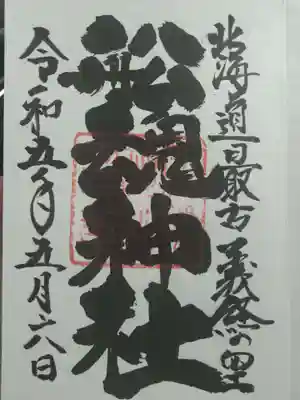 北海道最古義経の里
船魂神社
令和五年五月六日